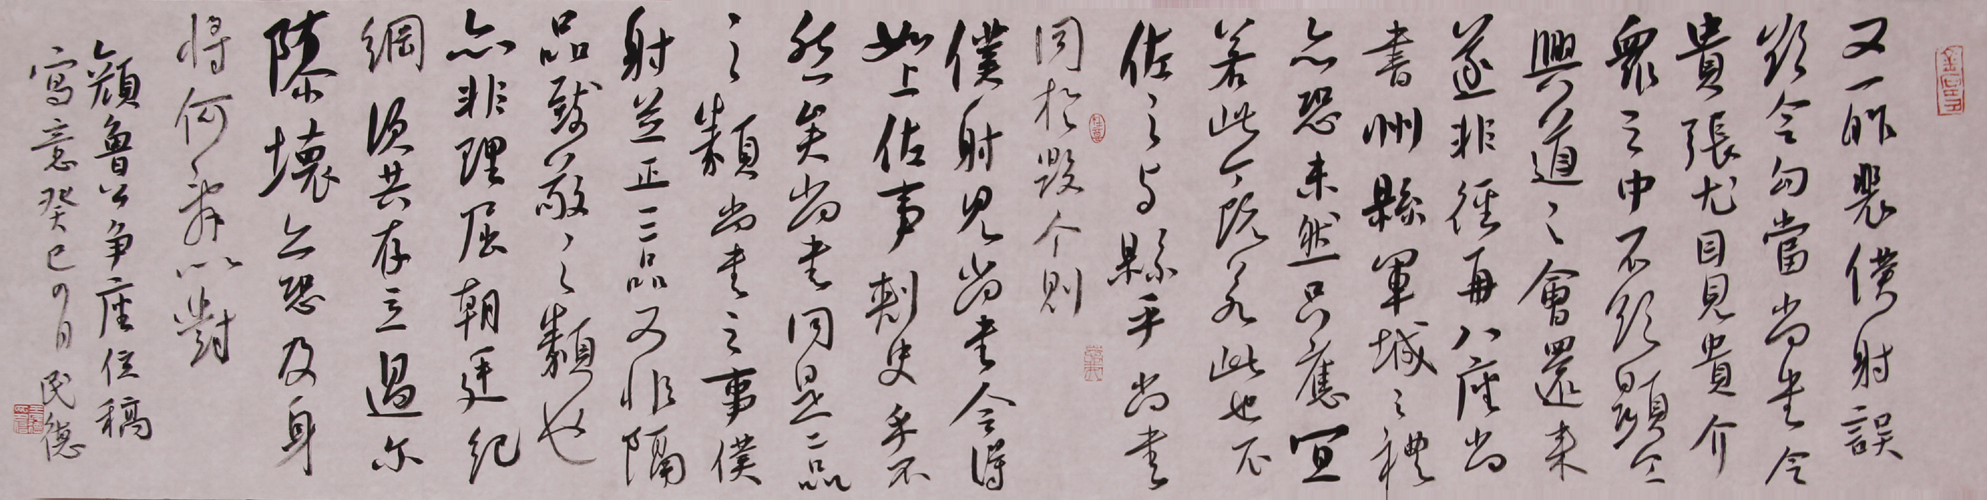 又一昨裴僕射誤
欲令勾當尚書令
貴張尤目見貴介
眾之中不欲顯
興道之會還来
遂非徑再八座尚
書州縣軍城之禮
亦恐未然只應宜
若此今既若此也不
佐之与縣乎尚書
同於 則
僕射見尚書令得
如上佐事刺史乎不
然矣尚書同是二品
之類尚書之事僕
射並正二品又非隔
品致敬之類也
亦非理屈朝廷紀
綱須共存立過尔
隳壞亦恐及身
将何辞以對
顔魯公争座位稿
寫意癸巳 月 民德